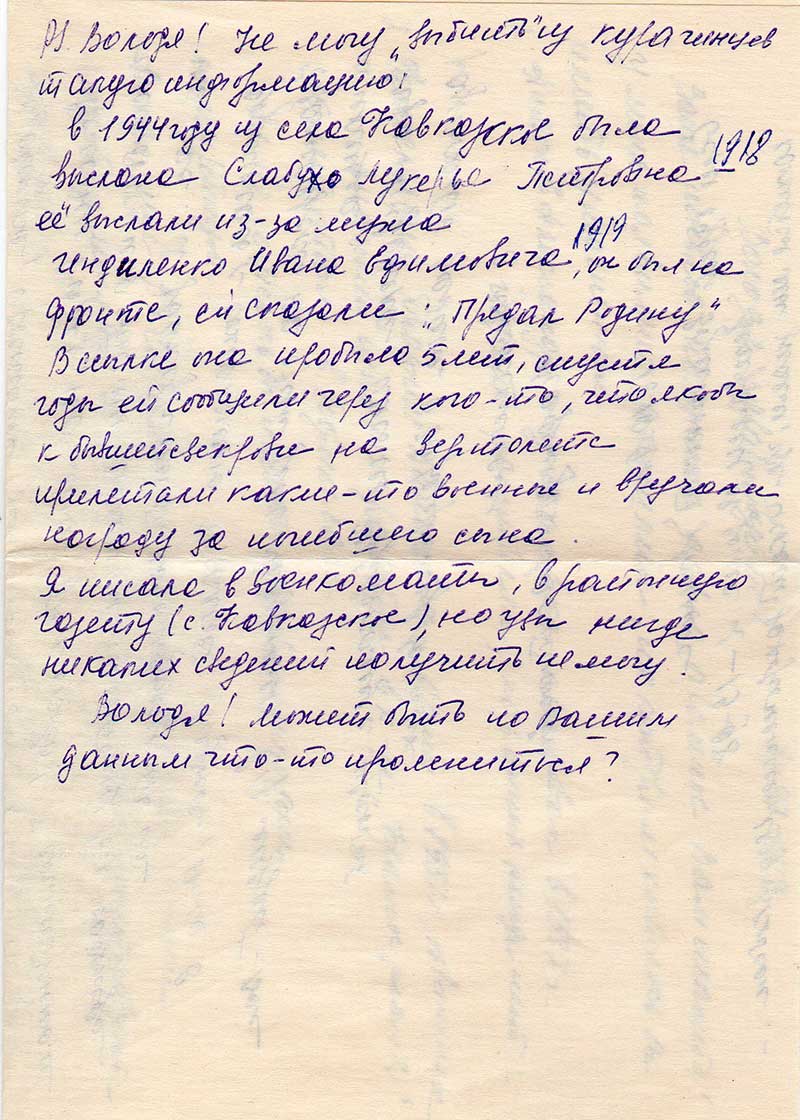 PS. Володя! Не могу „выбить" у курачинцев
такую информацию:
в 1944 году из села Кавказское была
выслана Слабухо Лукерья Петровна 1918
её выслали из-за мужа
Гиндиленко Ивана Ефимовича, 1919 он был на
фронте, ей сказали: „Предал Родину"
В ссылке она пробыла 5 лет, спустя
годы ей сообщили через кого-то, что якобы
к бывшей свекрови на вертолете
прилетали какие-то военные и вручали
награду за погибшего сына.
Я писала в военкоматы, в районную
газету (с. Кавказское), но увы нигде
никаких сведений получить не могу.
Володя! Может быть по Вашим
данным что-то прояснится?